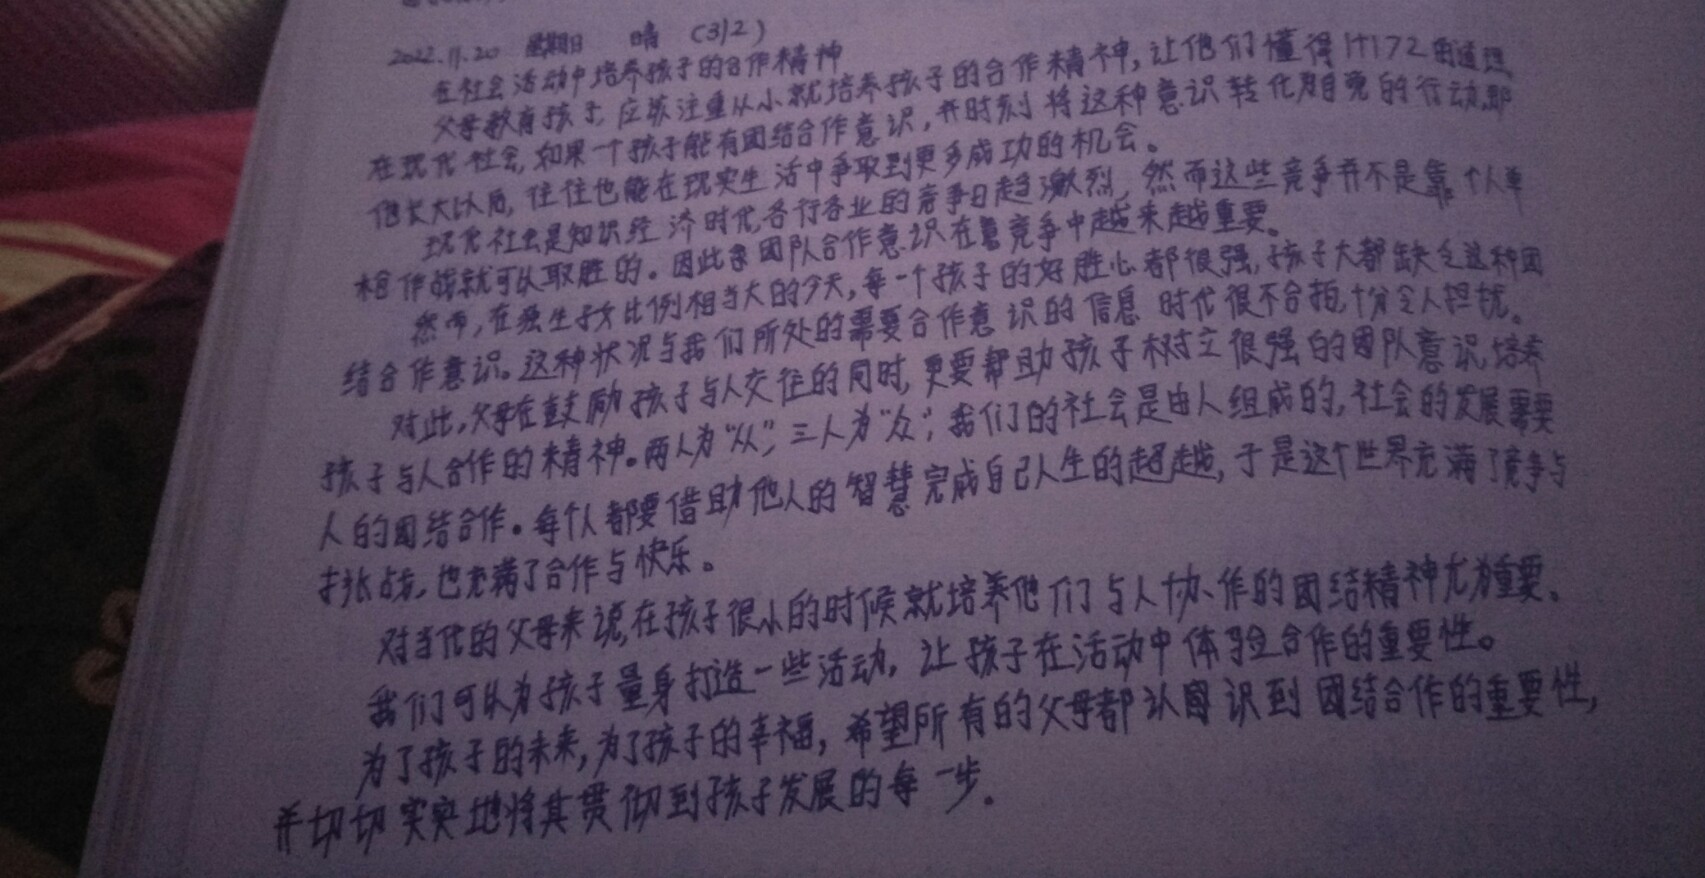 2022.11.20 星期日 晴 (312)
在社会活动中培养孩子的合作精神
父母教育孩子,应该注重从小就培养孩子的合作精神,让他们懂得1+1>2的道理
在现代社会,如果一个孩子能有团结合作意识,并时刻将这种意识转化为自觉的行动,那
他长大以后,往往也能在现实生活中争取到更多成功的机会。
现代社会是知识经济时代,各行各业的竞争日趋激烈,然而这些竞争并不是靠个人单
枪作战就可以取胜的。因此团队合作意识在竞争中越来越重要。
然而,在独生子女比例相当大的今天,每一个孩子的好胜心都很强,孩子大都缺乏这种团
结合作意识。这种状况与我们所处的需要合作意识的信息时代很不合拍,十分令人担扰。
对此,父母在鼓励孩子与人交往的同时,更要帮助孩子树立很强的团队意识,培养
孩子与人合作的精神。两人为“从”,三人为“众”,我们的社会是由人组成的,社会的发展需要
人的团结合作。每个人都要借助他人的智慧完成自己人生的超越,于是这个世界充满了竞争与
挑战,也充满了合作与快乐。
对当代的父母来说,在孩子很小的时候就培养他们与人协作的团结精神尤为重要。
我们可以为孩子量身打造一些活动,让孩子在活动中体验合作的重要性。
为了孩子的未来,为了孩子的幸福,希望所有的父母都认识到团结合作的重要性,
并切切实实地将其贯彻到孩子发展的每一步。